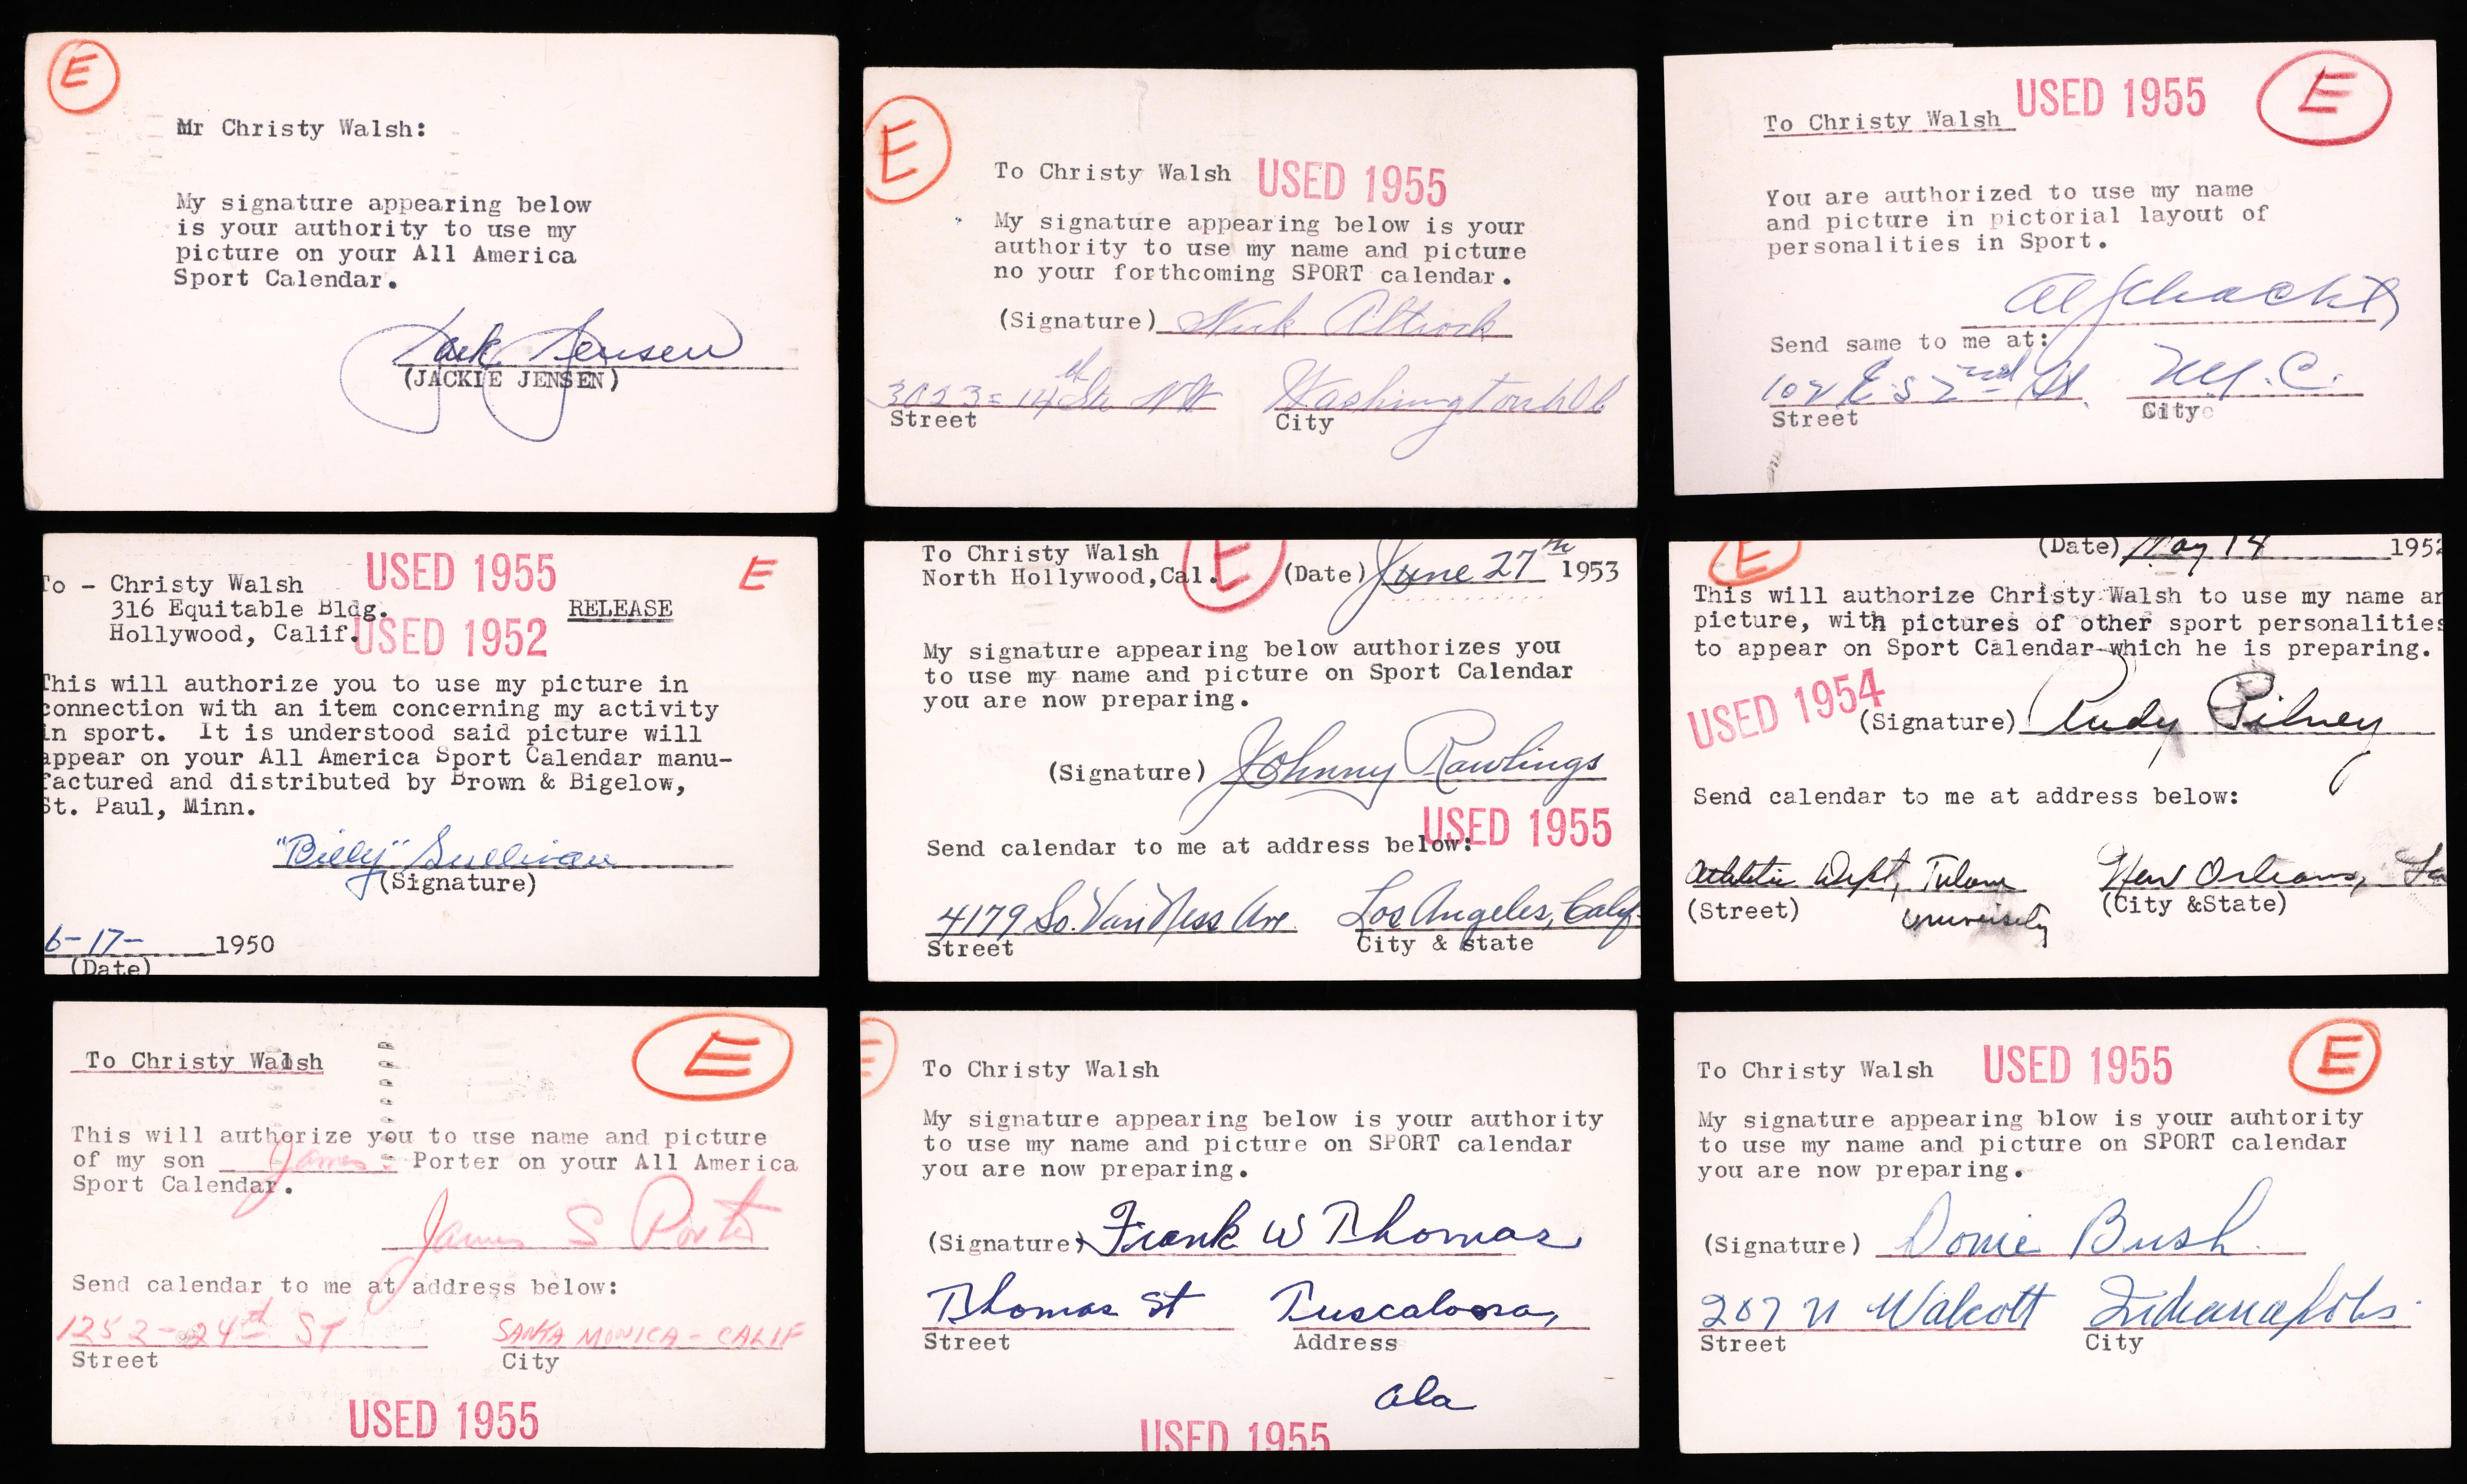 E
Mr Christy Walsh:
My signature appearing below
is your authority to use my
picture on your All America
Sport Calendar.
Jack Jensen
(JACKIE JENSEN)
E
To Christy Walsh USED 1955
My signature appearing below is your
authority to use my name and picture
no your forthcoming SPORT calendar.
(Signature) Nick Altrock
3023 = 14th St NW Washington
Street City
USED 1955 E
To Christy Walsh
You are authorized to use my name
and picture in pictorial layout of
personalities in Sport.
Al Schacht
Send same to me at:
102 E 52nd St. N.Y.C.
Street City
USED 1955 E
To - Christy Walsh
316 Equitable Bldg. RELEASE
Hollywood, Calif. USED 1952
This will authorize you to use my picture in
connection with an item concerning my activity
in sport. It is understood said picture will
appear on your All America Sport Calendar manu-
factured and distributed by Brown & Bigelow,
St. Paul, Minn.
"Billy" Sullivan
(Signature)
6-17- 1950
(Date)
To Christy Walsh E
North Hollywood,Cal. (Date) June 27th 1953
My signature appearing below authorizes you
to use my name and picture on Sport Calendar
you are now preparing.
(Signature) Johnny Rawlings
USED 1955
Send calendar to me at address below:
4179 So. Van Ness Ave. Los Angeles, Calif.
Street City & state
E (Date) May 14 195
This will authorize Christy Walsh to use my name an
picture, with pictures of other sport personalities
to appear on Sport Calendar which he is preparing.
USED 1954
(Signature) Rudy Pilney
Send calendar to me at address below:
Athletic Dept, Tulane New Orleans, La
(Street) University (City &State)
E
To Christy Walsh
This will authorize you to use name and picture
of my son James Porter on your All America
Sport Calendar.
James S Porter
Send calendar to me at address below:
1252-24th ST SANTA MONICA-CALIF
Street City
USED 1955
E
To Christy Walsh
My signature appearing below is your authority
to use my name and picture on SPORT calendar
you are now preparing.
(Signature) Frank W Thomas
Thomas St Tuscaloosa,
Street Address
Ala
USED 1955
To Christy Walsh USED 1955 E
My signature appearing blow is your auhtority
to use my name and picture on SPORT calendar
you are now preparing.
(Signature) Donie Bush.
207 N Walcott Indianapolis.
Street City